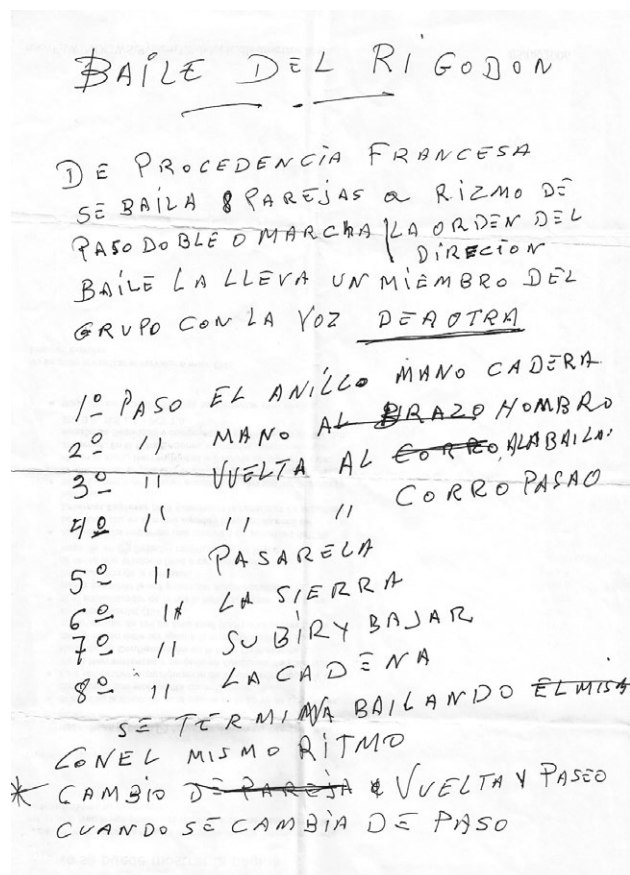 BAILE DEL RIGODON
DE PROCEDENCIA FRANCESA
SE BAILA 8 PAREJAS a RIZMO DE
PASODOBLE O MARCHA LA ORDEN DEL
DIRECION
BAILE LA LLEVA UN MIEMBRO DEL
GRUPO CON LA VOZ DEAOTRA
1º PASO EL ANILLO MANO CADERA
2º " MANO AL BRAZO HOMBRO
3º " VUELTA AL CORRO, ALABAILA:
4º " " " CORRO PASAO
5º " PASARELA
6º " LA SIERRA
7º " SUBIR Y BAJAR
8º " LA CADENA
SE TERMINA BAILANDO EL MISM
CONEL MISMO RITMO
* CAMBIO DE PAREJA VUELTA Y PASEO
CUANDO SE CAMBIA DE PASO